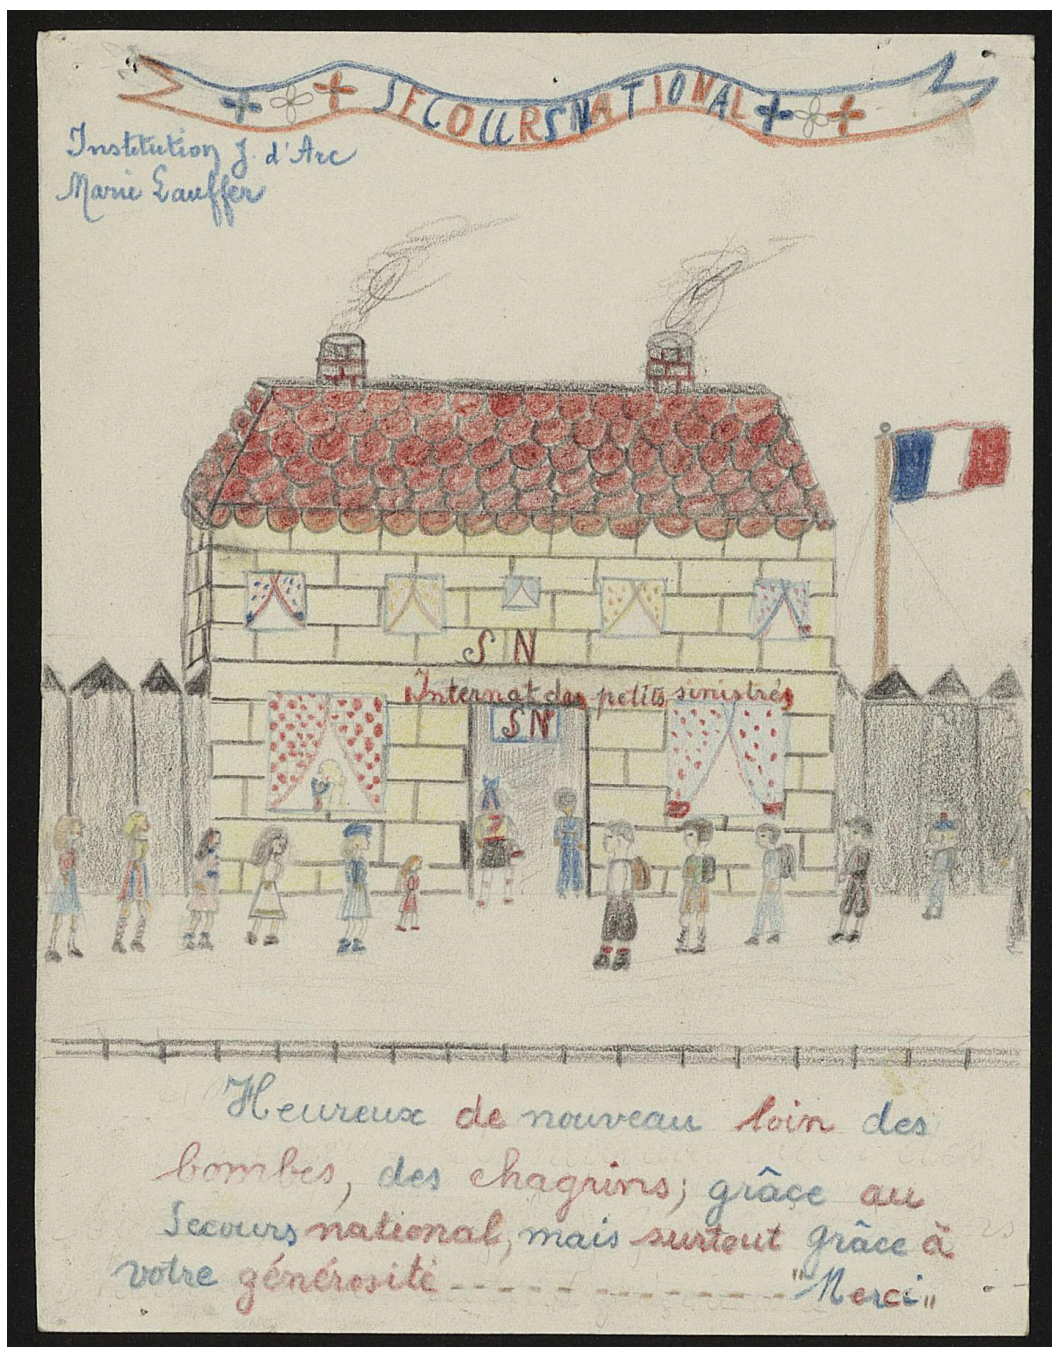 SECOURS NATIONAL
Institution J. d'Arc
Marie Lauffer
S N
Internat des petits sinistrés
SN
Heureux de nouveau loin des
bombes, des chagrins; grâce au
Secours national, mais surtout grâce à
votre générosité - - - - - - - - - "Merci"